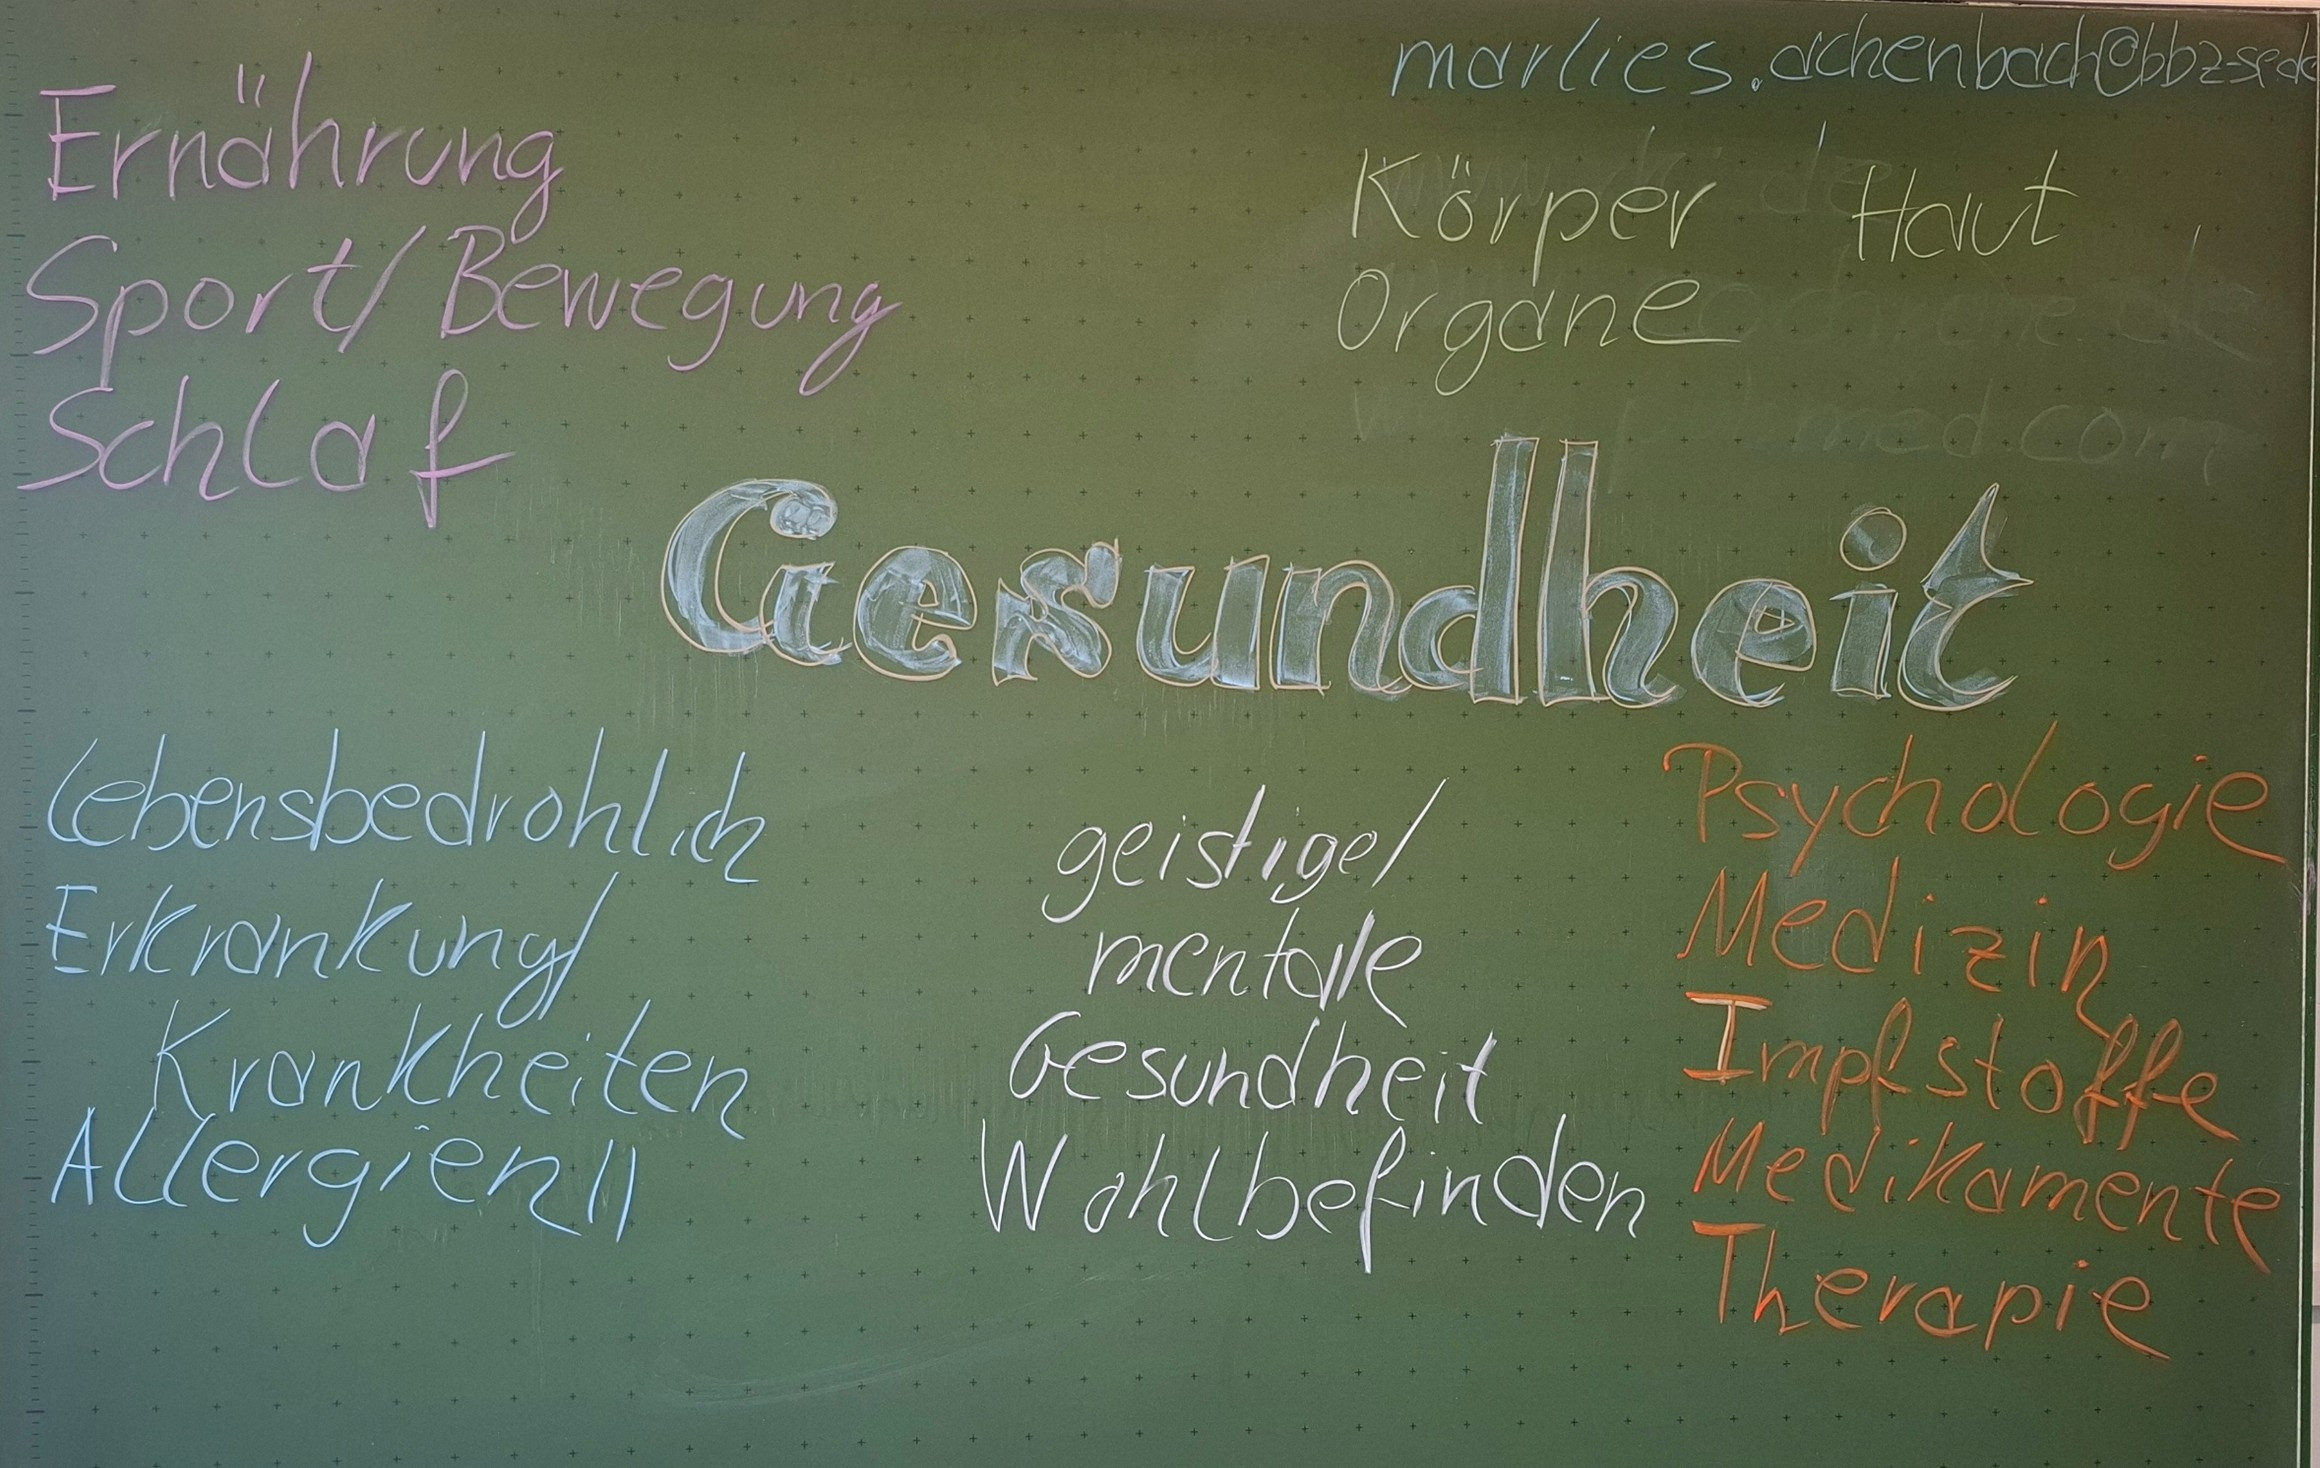 marlies.achenbach@bbz-se.de
Ernährung
Sport/Bewegung
Schlaf
Körper Haut
Organe
med.com
Gesundheit
Lebensbedrohlich
Erkrankung/
Krankheiten
Allergien!!
geistige/
mentale
Gesundheit
Wohlbefinden
Psychologie
Medizin
Impfstoffe
Medikamente
Therapie